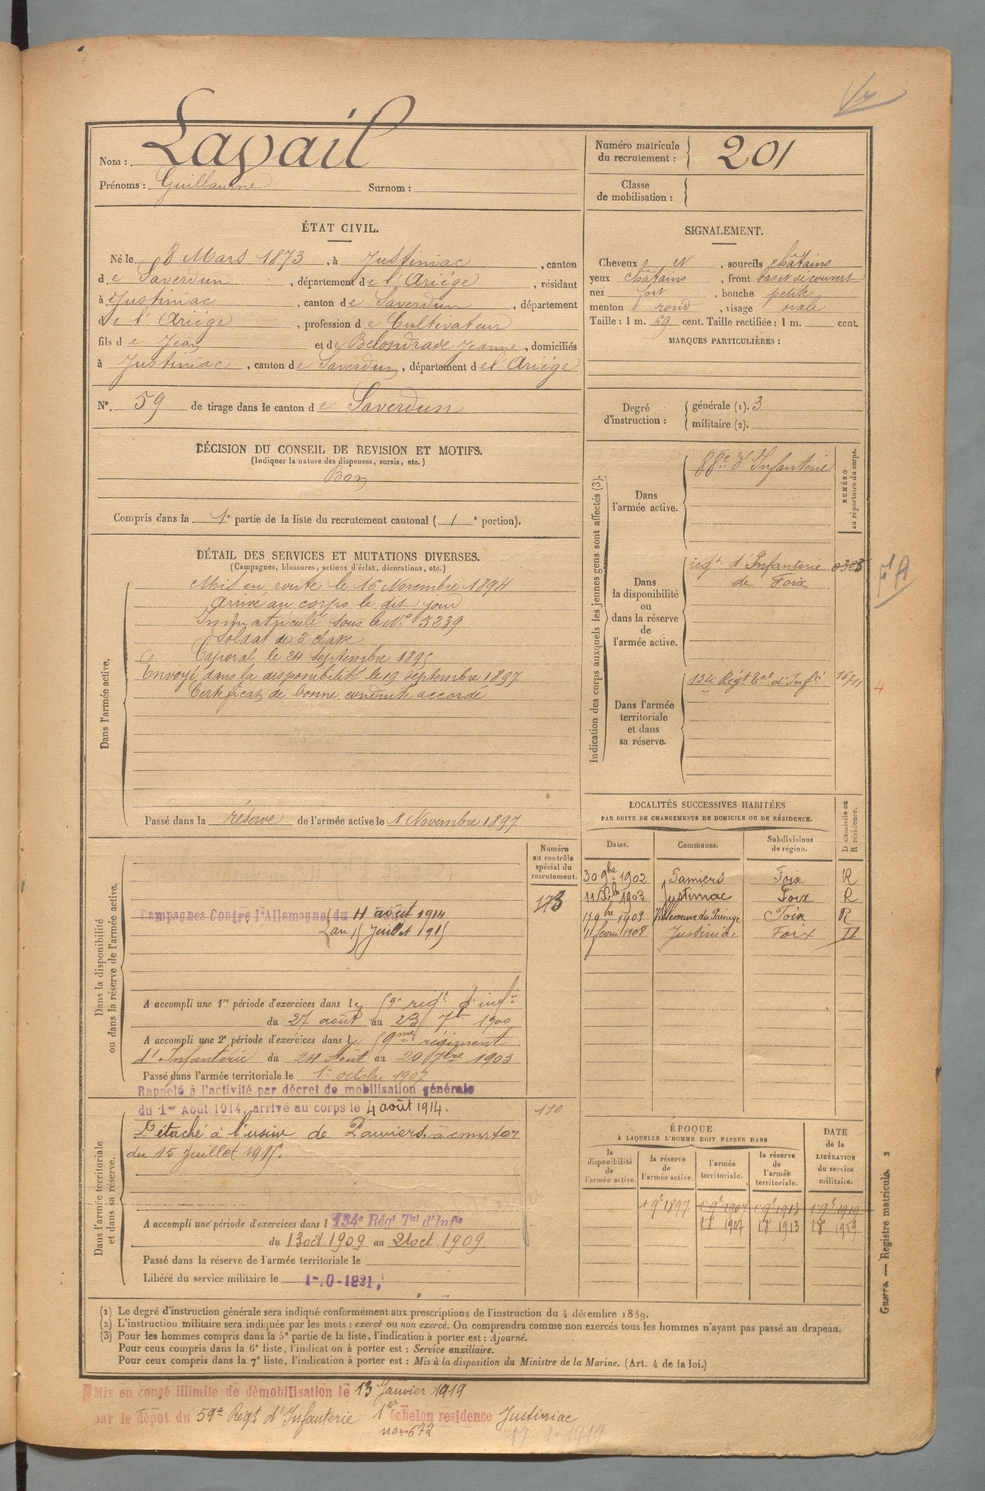 Nom : Lavail
Prénoms : Guillaume Surnom :
Numéro matricule du recrutement : 201
Classe de mobilisation :
ÉTAT CIVIL.
Né le 8 Mars 1873, à Justiniac, canton
de Saverdun, département de l'Ariége, résidant
à Justiniac, canton de Saverdun, département
de l'Ariége, profession de Cultivateur
fils de Jean et de Belondrade Jeanne, domiciliés
à Justiniac, canton de Saverdun, département de l'Ariége
N° 59 de tirage dans le canton de Saverdun
SIGNALEMENT.
Cheveux et, sourcils châtains
yeux châtains, front bas et découvert
nez fort, bouche petite
menton rond, visage ovale
Taille : 1 m. 59 cent. Taille rectifiée : 1 m. cent.
MARQUES PARTICULIÈRES :
Degré d'instruction : générale (1). 3
militaire (2).
DÉCISION DU CONSEIL DE REVISION ET MOTIFS.
(Indiquer la nature des dispenses, sursis, etc.)
Bon
Compris dans la 1e partie de la liste du recrutement cantonal (1e portion).
DÉTAIL DES SERVICES ET MUTATIONS DIVERSES.
(Campagnes, blessures, actions d'éclat, décorations, etc.)
Dans l'armée active.
Mis en route le 16 Novembre 1894
Arrivé au corps le dit jour
Immatriculé sous le N° 5239
Soldat de 2 classe
Caporal le 24 Septembre 1895
Envoyé dans la disponibilité le 19 Septembre 1897
Certificat de bonne conduite accordé
Passé dans la réserve de l'armée active le 1 Novembre 1897
Indication des corps auxquels les jeunes gens sont affectés (3).
NUMÉRO au répertoire du corps.
Dans l'armée active.
88e d'Infanterie
Dans la disponibilité ou dans la réserve de l'armée active.
régt d'Infanterie 0303
de Foix
Dans l'armée territoriale et dans sa réserve.
134e Régt Tal d'Infie
LOCALITÉS SUCCESSIVES HABITÉES
PAR SUITE DE CHANGEMENTS DE DOMICILE OU DE RÉSIDENCE.
Dates. Communes. Subdivisions de région. D domicile ou R résidence.
30 9bre 1902 Pamiers Foix R
1903 Justiniac Foix R
Villeneuve du Paréage Foix R
11 février 1908 Justiniac Foix D
Dans la disponibilité ou dans la réserve de l'armée active.
Numéro au contrôle spécial du recrutement.
173
Campagnes Contre l'Allemagne du 11 août 1914
au 15 Juillet 1915
A accompli une 1re période d'exercices dans le 59e régt d'infie
du 27 août au 23 7bre 1900
A accompli une 2e période d'exercices dans le 59me régiment
d'Infanterie du 24 Août au 20 7bre 1903
Passé dans l'armée territoriale le 1er octobre 1907
Rappelé à l'activité par décret de mobilisation générale
du 1er Août 1914, arrivé au corps le 4 août 1914.
110
Dans l'armée territoriale et dans sa réserve.
Détaché à l'usine de Pamiers à compter
du 15 Juillet 1915.
A accompli une période d'exercices dans l 134e Régt Tal d'Infie
du 13 oct 1909 au 21 oct 1909
Passé dans la réserve de l'armée territoriale le
Libéré du service militaire le
ÉPOQUE
À LAQUELLE L'HOMME DOIT PASSER DANS
la disponibilité de l'armée active. la réserve de l'armée active. l'armée territoriale. la réserve de l'armée territoriale.
DATE de la LIBÉRATION du service militaire.
1 9e 1897 1 9e 1907 1 9e 1913 1 9e 1919
1907 1913 1919
(1) Le degré d'instruction générale sera indiqué conformément aux prescriptions de l'instruction du 4 décembre 1889.
(2) L'instruction militaire sera indiquée par les mots : exercé ou non exercé. On comprendra comme non exercés tous les hommes n'ayant pas passé au drapeau.
(3) Pour les hommes compris dans la 5e partie de la liste, l'indication à porter est : Ajourné.
Pour ceux compris dans la 6e liste, l'indication à porter est : Service auxiliaire.
Pour ceux compris dans la 7e liste, l'indication à porter est : Mis à la disposition du Ministre de la Marine. (Art. 4 de la loi.)
Guerre. — Registre matricule. 2
Mis en congé illimité de démobilisation le 13 Janvier 1919
par le dépôt du 59e Régt d'Infanterie 1er échelon résidence Justiniac
17 1 1919